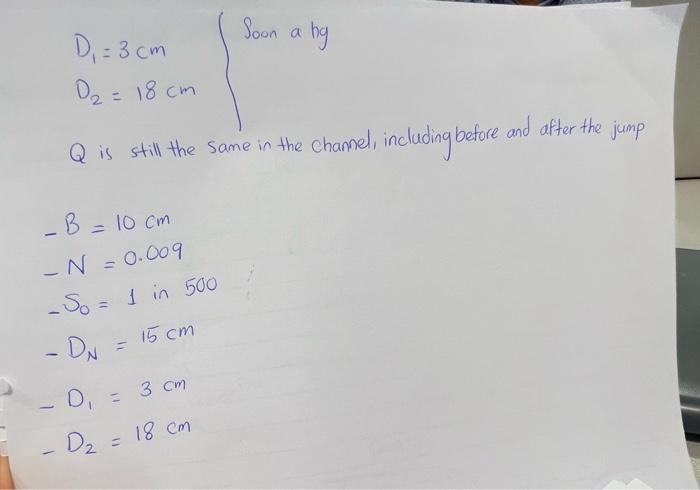 D₁ = 3 cm
D₂ = 18 cm
Soon a hg
Q is still the same in the channel, including before and after the jump
- B = 10 cm
- N = 0.009
- S₀ = 1 in 500
- D_N = 15 cm
- D₁ = 3 cm
- D₂ = 18 cm